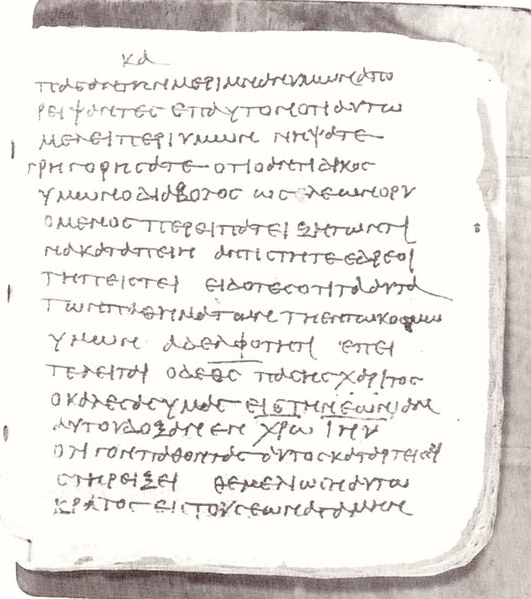 κα
πασαν την μεριμναν υμων απο
ρειψαντες επ αυτον οτι αυτω
μελει περι υμων νηψατε
γρηγορησατε οτι ο αντιδικος
υμων ο διαβολος ως λεων ορυ
ομενος περειπατει ζητων τι
να καταπειν αντιστητε εδρεοι
τη πειστει ειδοτες οτι τα αυτα
των παθηματων τη εν τω κοσμω
υμων αδελφοτητι επει
τελειται ο δε θς πασης χαριτος
ο καλεσας υμας εις την εωνιον
αυτου δοξαν εν χρω ιην υ
ολιγον παθοντας αυτος καταρτεισει
στηρειξει θεμελιωσει αυτω
κρατος εις τους εωνας αμην